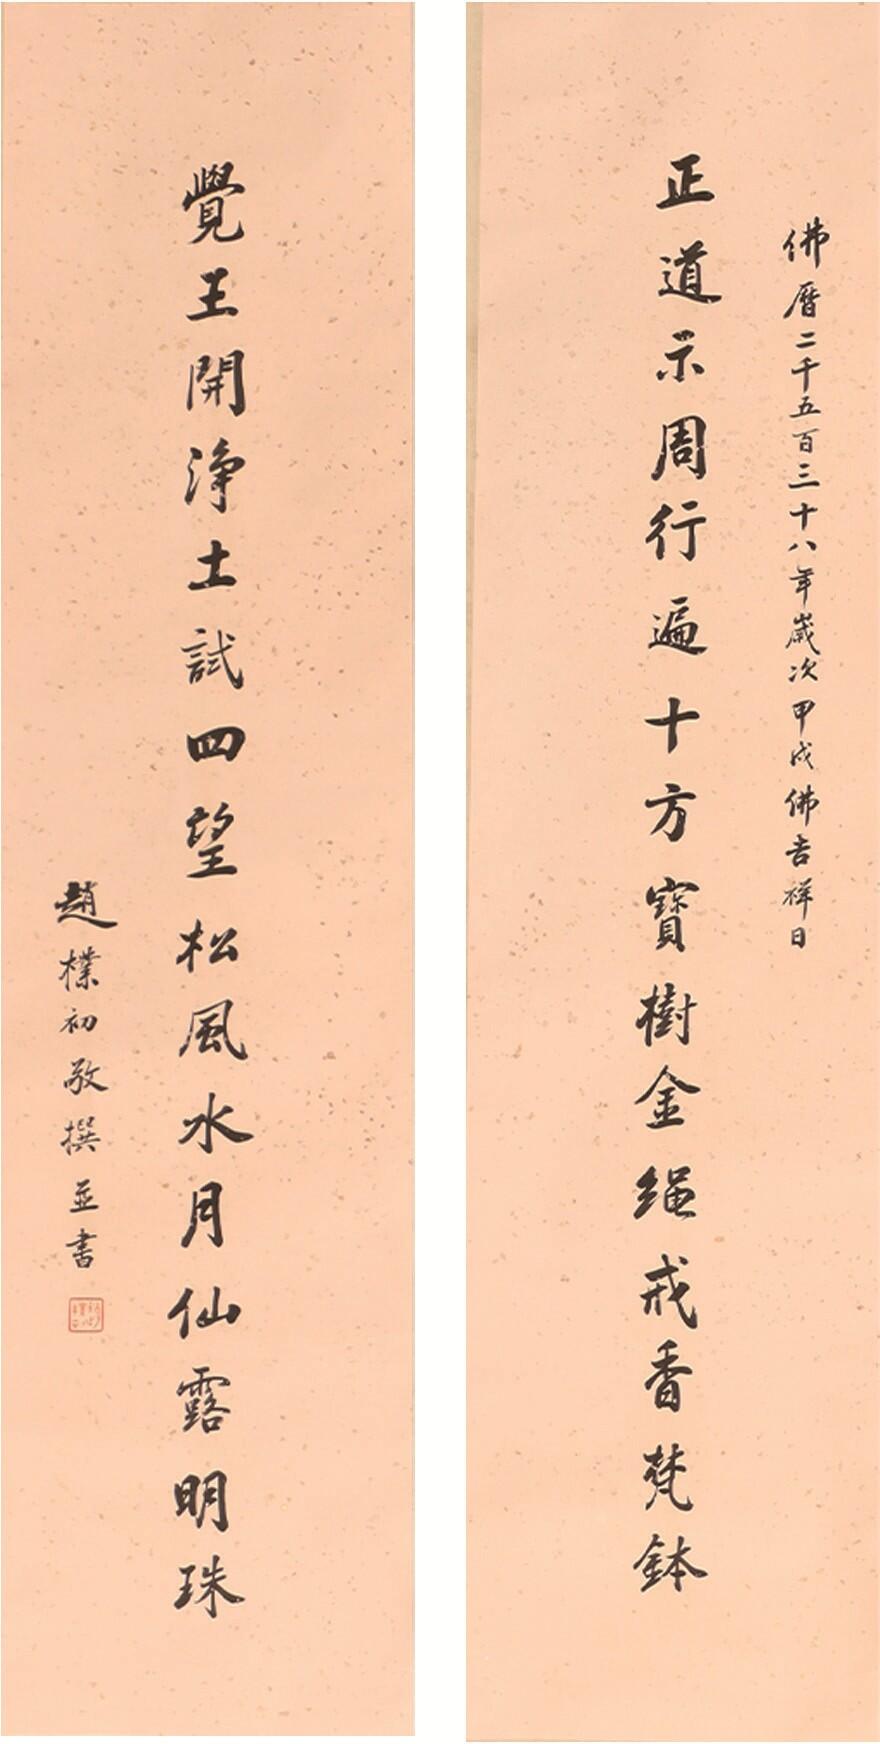 佛曆二千五百三十八年歲次甲戌佛吉祥日
正道示周行遍十方寶樹金繩戒香梵鉢
覺王開淨土試四望松風水月仙露明珠
趙樸初敬撰並書